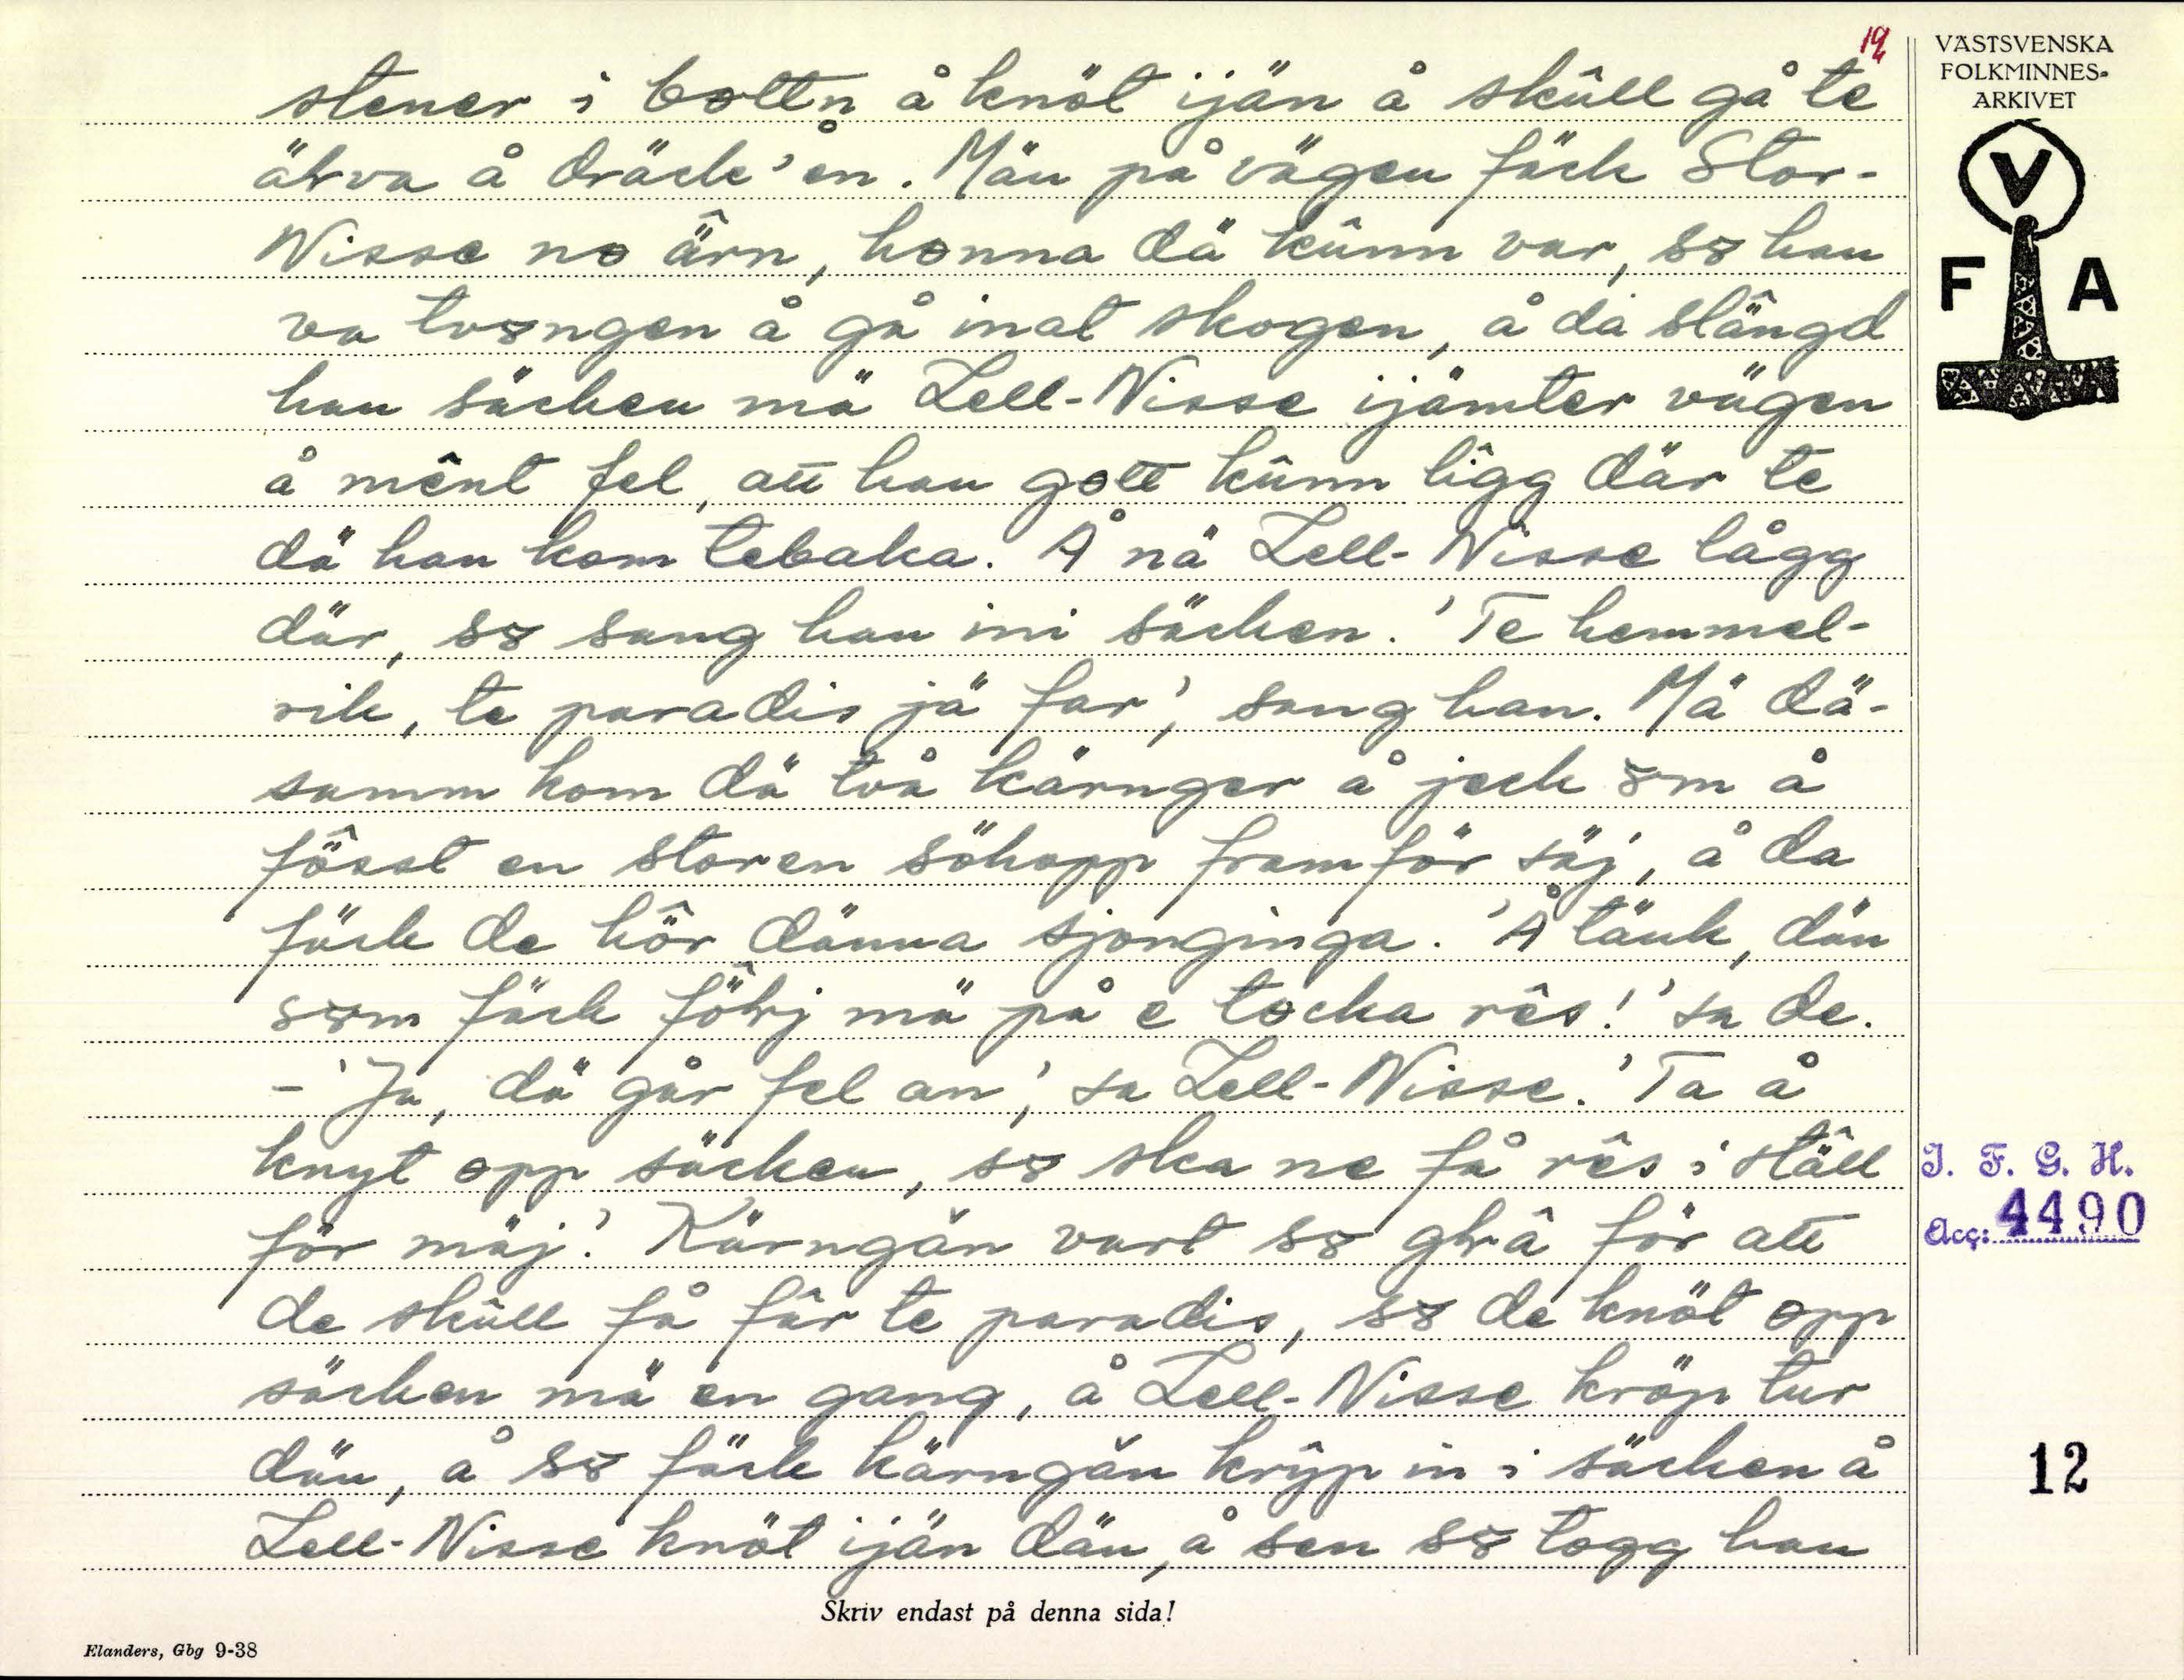 19
VÄSTSVENSKA
FOLKMINNES-
ARKIVET
V
F A
stener i bottn å knöt ijän å skûll gå te
älva å dräck'en. Män på vägen fäck Stor-
Nisse no ärn, honna dä kûnn var, so han
va tvongen å gå inat skogen, å då slängd
han säcken mä Lell-Nisse ijämter vägen
å mênt fel, att han gott kûnn lîgg där te
dä han kom tebaka. Å nä Lell-Nisse lågg
där, so sang han ini säcken. 'Te hemmel-
rik, te paradis jä far', sang han. Mä dä-
samm kom dä två kärnger å jeck om å
fösst en storen söhopp framför säj, å da
fäck de hôr dänna sjonginga. 'Å tänk, dän
som fäck fôlrj mä på e tocka rês!' sa de.
- 'Ja, dä går fel an', sa Lell-Nisse. 'Ta å
knyt opp säcken, so ska ne få rês i ställ
för mäj'. Kärngăn vart so glrâ för att
de skûll få fâr te paradis, so de knöt opp
säcken mä en gang, å Lell-Nisse kröp tur
dän, å so fäck kärngăn krŷp in i säcken å
Lell-Nisse knöt ijän dän, å sen so togg han
J. F. G. H.
Acc: 4490
12
Skriv endast på denna sida!
Elanders, Gbg 9-38